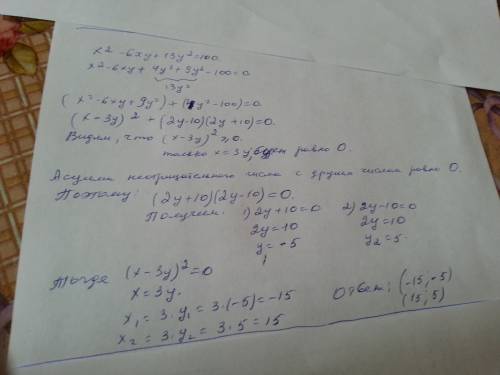 x² - 6xy + 13y² = 100.
x² - 6xy + 4y² + 9y² - 100 = 0
13y²
(x² - 6xy + 9y²) + (4y² - 100) = 0.
(x - 3y)² + (2y - 10)(2y + 10) = 0.
Видим, что (x - 3y)² ≥ 0.
только x = 3y, будет равно 0.
А сумма неотрицательного числа с другим числом равно 0.
Поэтому: (2y + 10)(2y - 10) = 0.
Получим: 1) 2y + 10 = 0 2) 2y - 10 = 0
2y = 10 2y = 10
y₁ = -5 y₂ = 5.
Тогда (x - 3y)² = 0
x = 3y.
x₁ = 3·y₁ = 3·(-5) = -15
x₂ = 3·y₂ = 3·5 = 15
Ответ: (-15, -5)
(15; 5)